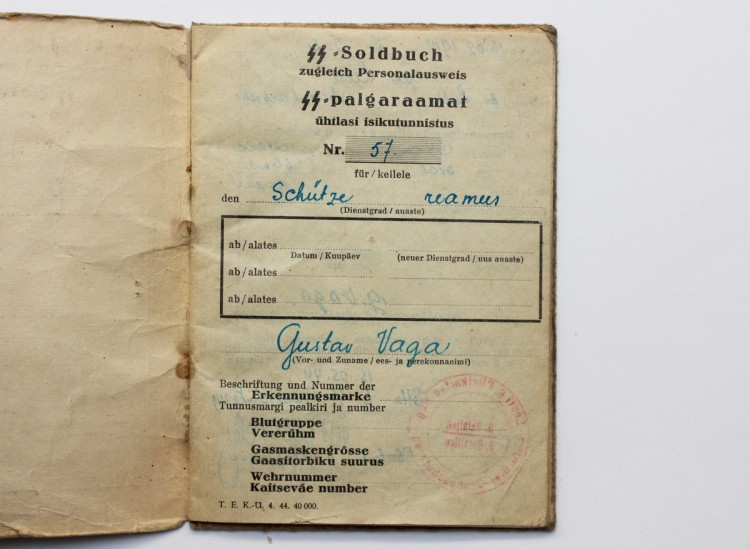 ᛋᛋ-Soldbuch
zugleich Personalausweis
ᛋᛋ-palgaraamat
ühtlasi isikutunnistus
Nr. 57.
für/keilele
den Schütze reamees
(Dienstgrad / auaste)
ab/alates
Datum / Kuupäev (neuer Dienstgrad / uus auaste)
ab/alates
ab/alates
Gustav Vaga
(Vor- und Zuname / ees- ja perekonnanimi)
Beschriftung und Nummer der
Erkennungsmarke
Tunnusmärgi pealkiri ja number
Blutgruppe
Vererühm
Gasmaskengrösse
Gaasitorbiku suurus
Wehrnummer
Kaitseväe number
T. E. K.-Ü. 4. 44. 40 000.